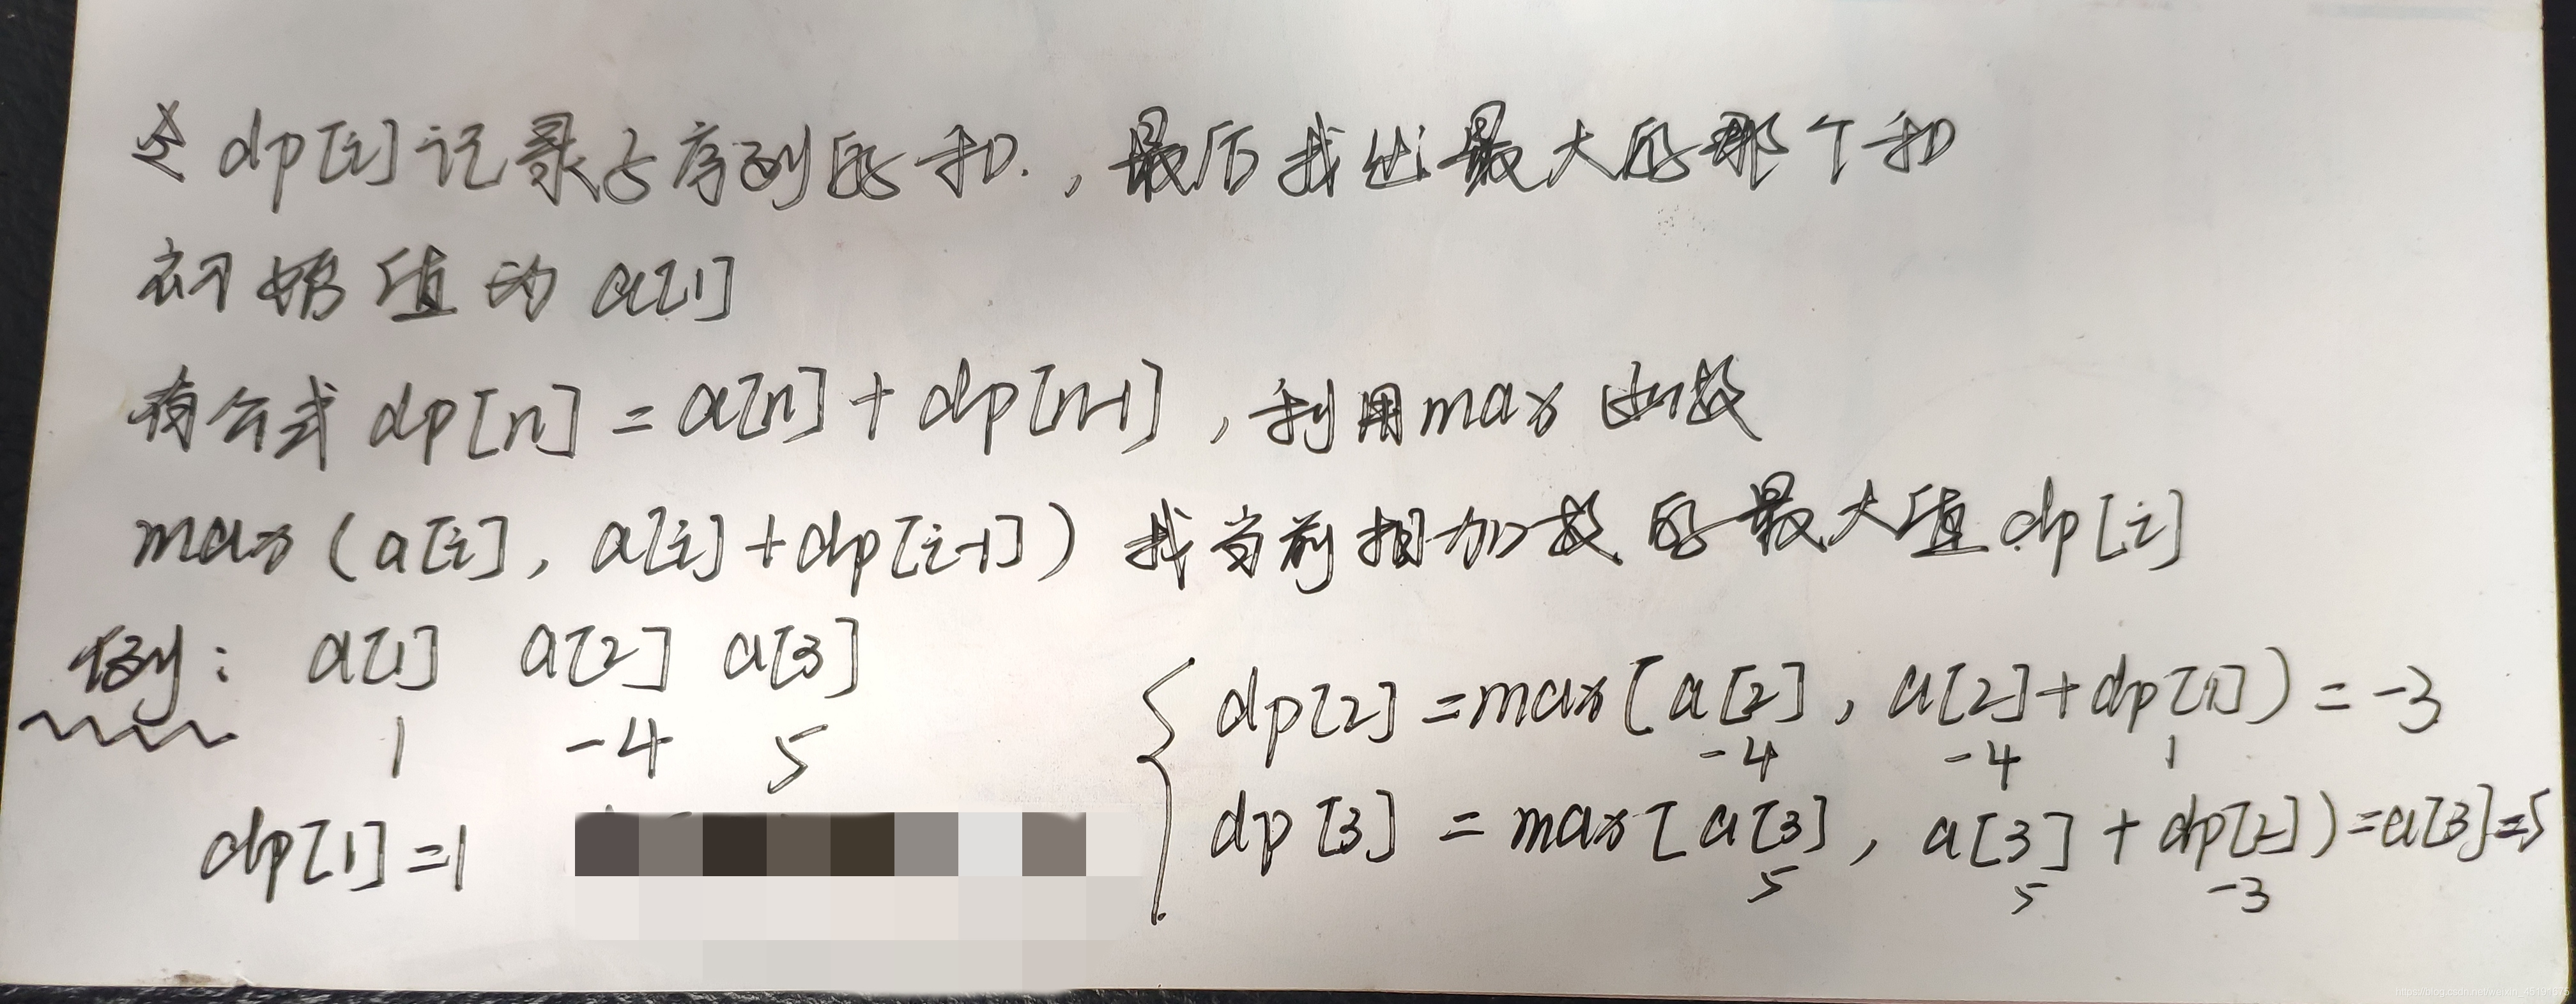 令dp[i]记录子序列的和.，最后找出最大的那个和
初始值为a[1]
有公式dp[n]=a[n]+dp[n-1]，利用max函数
max(a[i]，a[i]+dp[i-1])找当前相加数的最大值dp[i]
例：a[1] a[2] a[3]
1 -4 5
dp[1]=1
dp[2]=max[a[2]，a[2]+dp[1])=-3
-4 -4 1
dp[3]=max[a[3]，a[3]+dp[2])=a[3]=5
5 5 -3